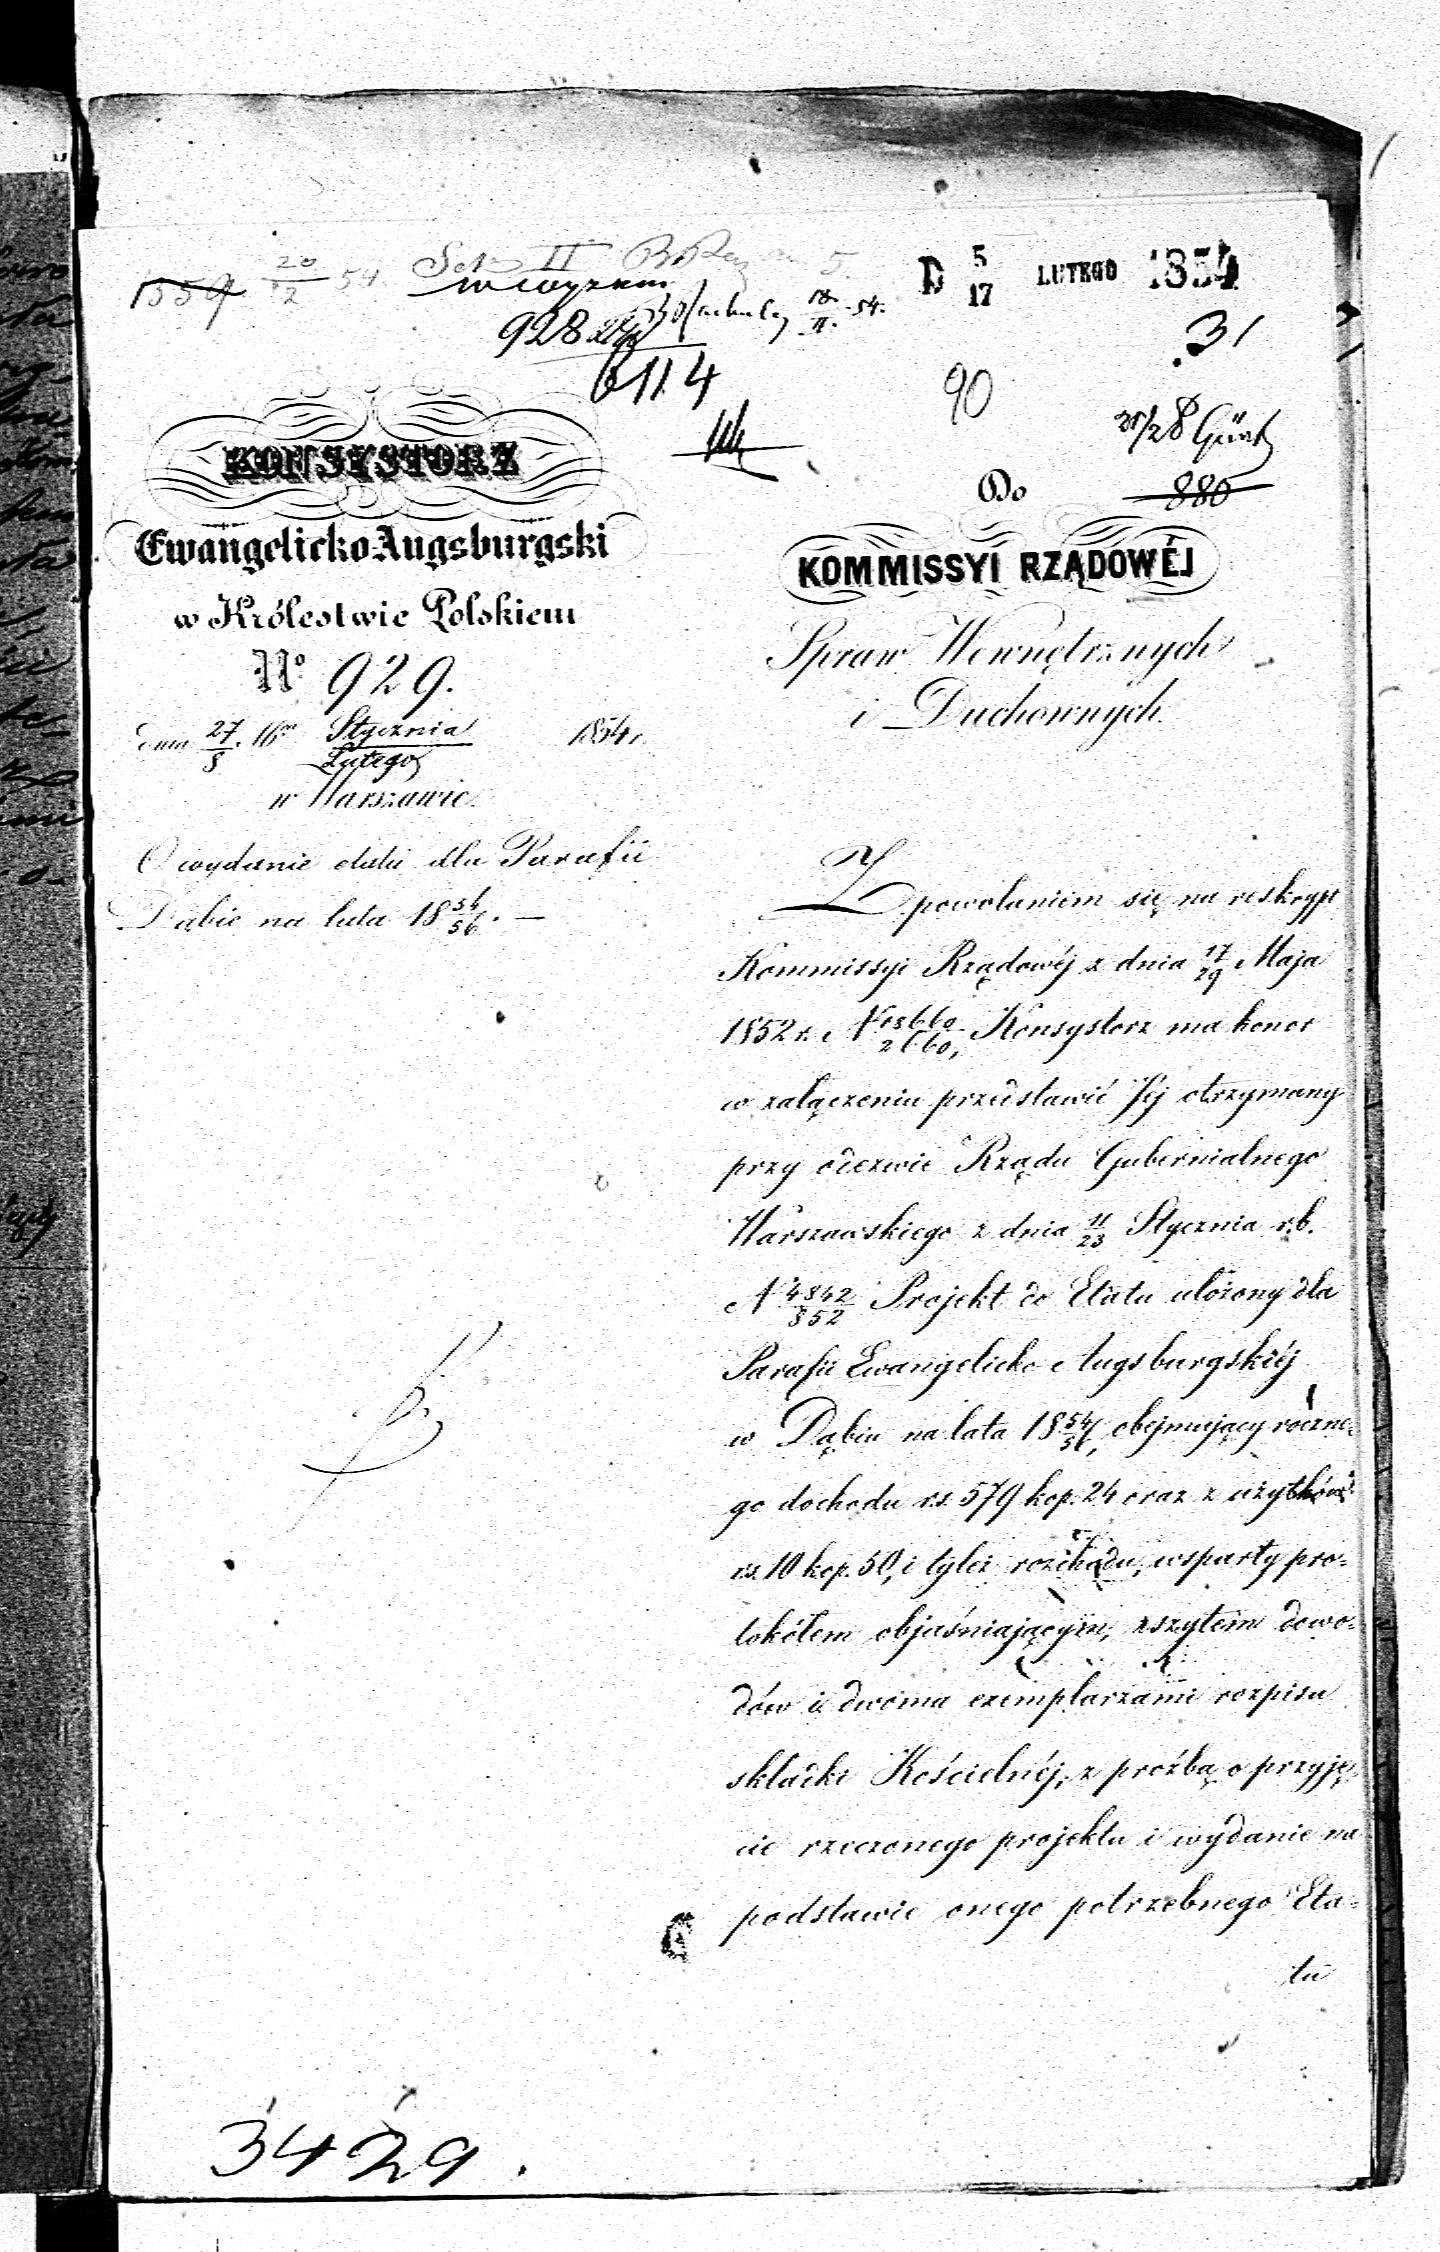 1359 20/12 54 Sek II
D 5/17 LUTEGO 1854
18/II 54.
928
6114
31
90
28
Do
880
KONSYSTORZ
Ewangelicko-Augsburgski
w Królestwie Polskiem
No 929.
dnia 27/8 Stycznia/Lutego 1854 r.
w Warszawie.
O wydanie etatu dla Parafii
Dąbie na lata 18 54/56. —
KOMMISSYI RZĄDOWÉJ
Spraw Wewnętrznych
i Duchownych
Z powołaniem się na reskrypt
Kommissyi Rządowéj z dnia 17/29 Maja
1852 r. N Konsystorz ma honor
w załączeniu przedstawić Jéj otrzymany
przy odezwie Rządu Gubernialnego
Warszawskiego z dnia 11/23 Stycznia r.b.
N 4842/852 Projekt do Etatu ułożony dla
Parafii Ewangelicko Augsburgskiéj
w Dąbiu na lata 18 54/56, obejmujący roczne-
go dochodu rs. 579 kop. 24 oraz z użytków
rs. 10 kop. 50, i tyleż rozchodu, wsparty pro-
tokółem objaśniającym, zszytem dowo-
dów i dwoma exemplarzami rozpisu
składki Kościelnéj, z prośbą o przyję-
cie rzeczonego projektu i wydanie na
podstawie onego potrzebnego Eta-
tu
3429.